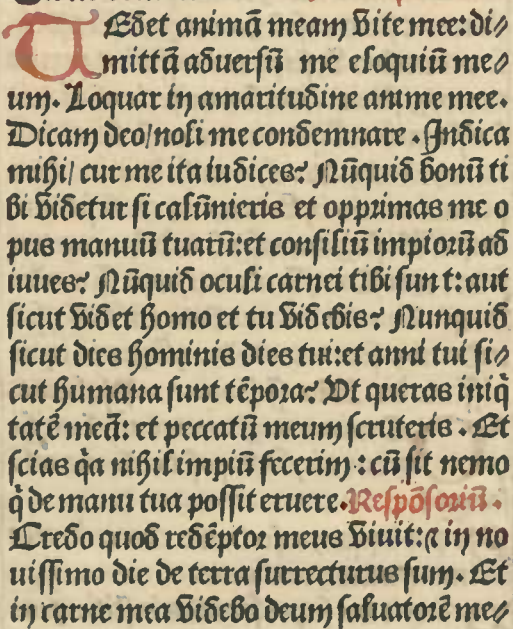 TEdet animā meam vite mee: di⸗
mittā aduersū me eloquiū me⸗
um. Loquar in amaritudine anime mee.
Dicam deo/noli me condemnare. Indica
mihi/ cur me ita iudices? Nūquid bonū ti
bi videtur si calūnieris et opprimas me o
pus manuū tuarū: et consiliū impiorū ad
iuues? Nūquid oculi carnei tibi sunt: aut
sicut videt homo et tu videbis? Nunquid
sicut dies hominis dies tui: et anni tui si⸗
cut humana sunt tēpora? Ut queras iniq̄
tatē meā: et peccatū meum scruteris. Et
scias q̄a nihil impiū fecerim: cū sit nemo
q̄ de manu tua possit eruere. Respōsoriū.
Credo quod redēptor meus viuit: ⁊ in no
uissimo die de terra surrecturus sum. Et
in carne mea videbo deum saluatorē me⸗